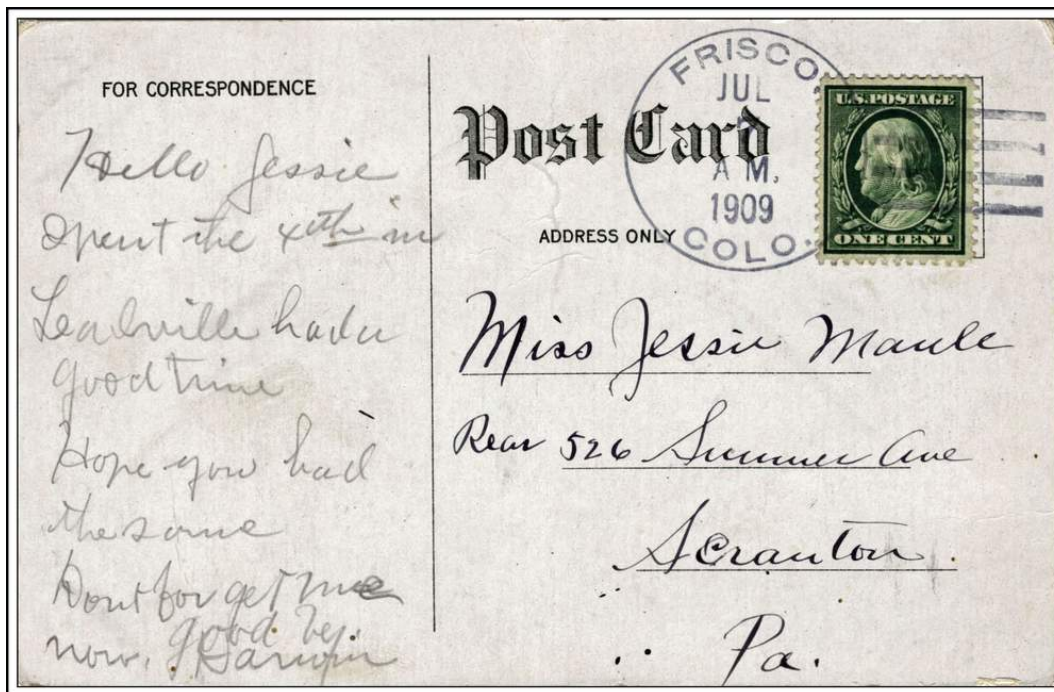 FOR CORRESPONDENCE
Hello Jessie
Spent the 4th in
Leadville had a
good time
Hope you had
the same
Dont forget me
now. good by.
Darwin
Post Card
ADDRESS ONLY
FRISCO,
JUL
A M,
1909
COLO.
U.S. POSTAGE
ONE CENT
Miss Jessie Maule
Rear 526 Summer Ave
Scranton
Pa.